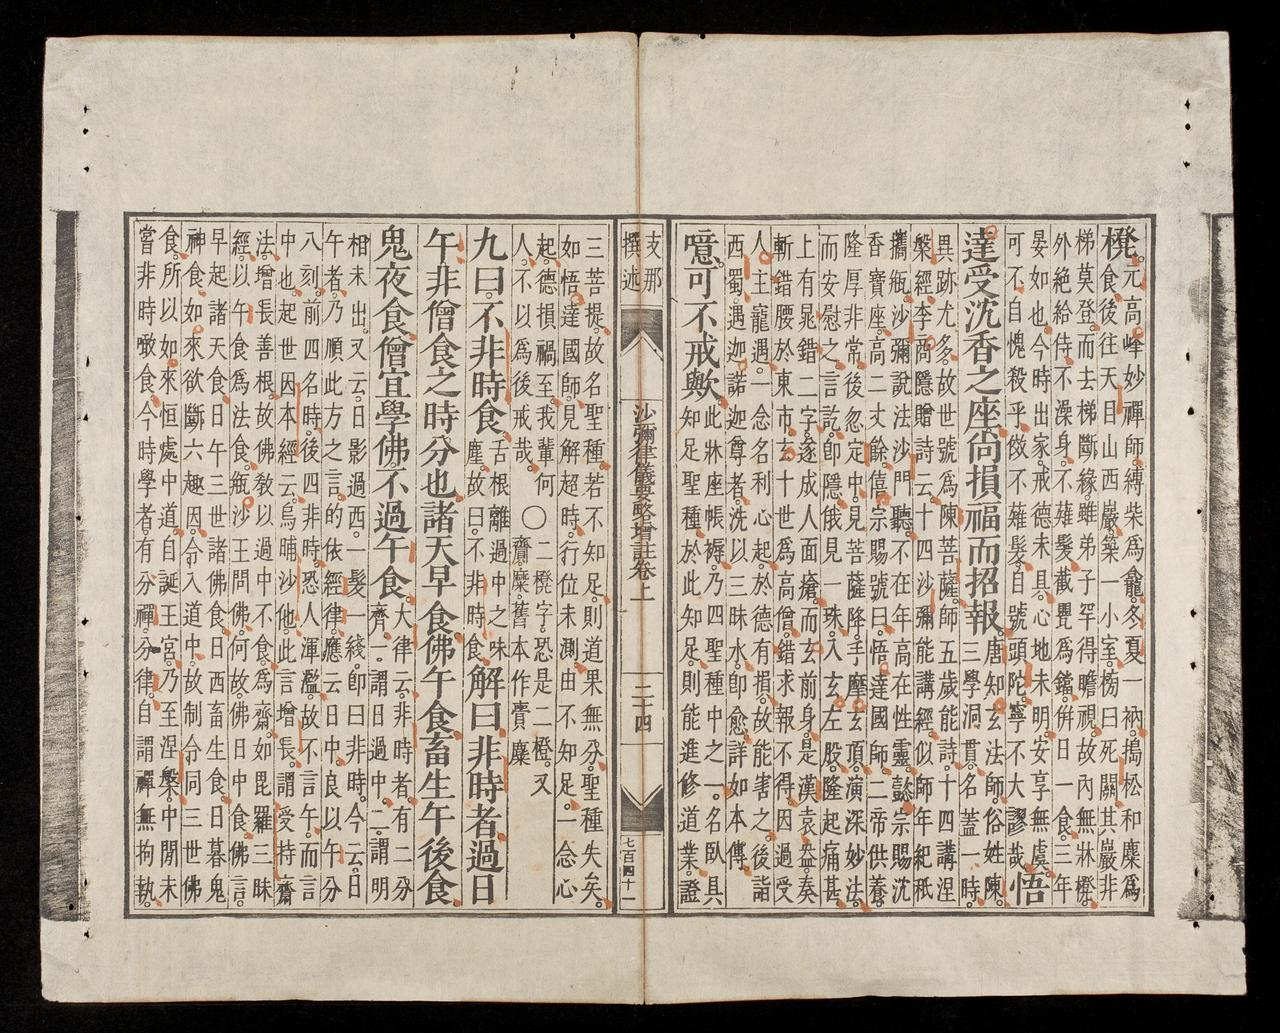 櫈元高峰妙禪師縛柴為龕冬夏一衲搗松和麋為
食後往天目山西巖築一小室榜曰死關其巖非
梯莫登而去梯斷緣雖弟子罕得瞻視故內無牀櫈
外絕給侍不澡身不薙髮截甖為鐺併日一食三年
晏如也今時出家戒德未具心地未明安享無虞
可不自愧殺乎倣不薙髮自號頭陀寧不大謬哉悟
達受沈香之座尚損福而招報唐知玄法師俗姓陳
三學洞貫名蓋一時
異跡尤多故世號為陳菩薩師五歲能詩十四講涅
槃經李商隱贈詩云十四沙彌能講經似師年紀秖
攜瓶沙彌說法沙門聽不在年高在性靈懿宗賜沈
香寶座高二丈餘僖宗賜號曰悟達國師二帝供養
隆厚非常後忽定中見菩薩降手摩玄頂演深妙法
而安慰之言訖即隱俄見一珠入玄左股隆起痛甚
上有晁錯二字遂成人面瘡而玄前身是漢袁盎奏
斬錯腰於東市玄十世為高僧錯求報不得因過受
人主寵遇一念名利心起於德有損故能害之後詣
西蜀遇迦諾迦尊者洗以三昧水即愈詳如本傳
噫可不戒歟此牀座帳褥乃四聖種中之一名臥具
知足聖種於此知足則能進修道業證
支那
撰述
沙彌律儀要略增註卷上
二十四
七百四十一
三菩提故名聖種若不知足則道果無分聖種失矣
如悟達國師見解超時行位未測由不知足一念心
起德損禍至我輩何〇二櫈字恐是二橙又
人不以為後戒哉齎麋舊本作賷糜
九曰不非時食舌根離過中之味
塵故曰不非時食解曰非時者過日
午非僧食之時分也諸天早食佛午食畜生午後食
鬼夜食僧宜學佛不過午食大律云非時者有二分
齊一謂日過中二謂明
相未出又云日影過西一髮一綫即曰非時今云日
午者乃順此方之言的依經律應云日中良以午分
八刻前四名時後四非時恐人渾濫故不言午而言
中也起世因本經云烏晡沙他此言增長謂受持齋
法增長善根故佛教以過中不食為齋如毘羅三昧
經以午食為法食缾沙王問佛何故佛日中食佛言
早起諸天食日午三世諸佛食日西畜生食日暮鬼
神食如來欲斷六趣因令入道中故制令同三世佛
食所以如來恒處中道自誕王宮乃至涅槃中間未
嘗非時噉食今時學者有分禪分律自謂禪無拘執